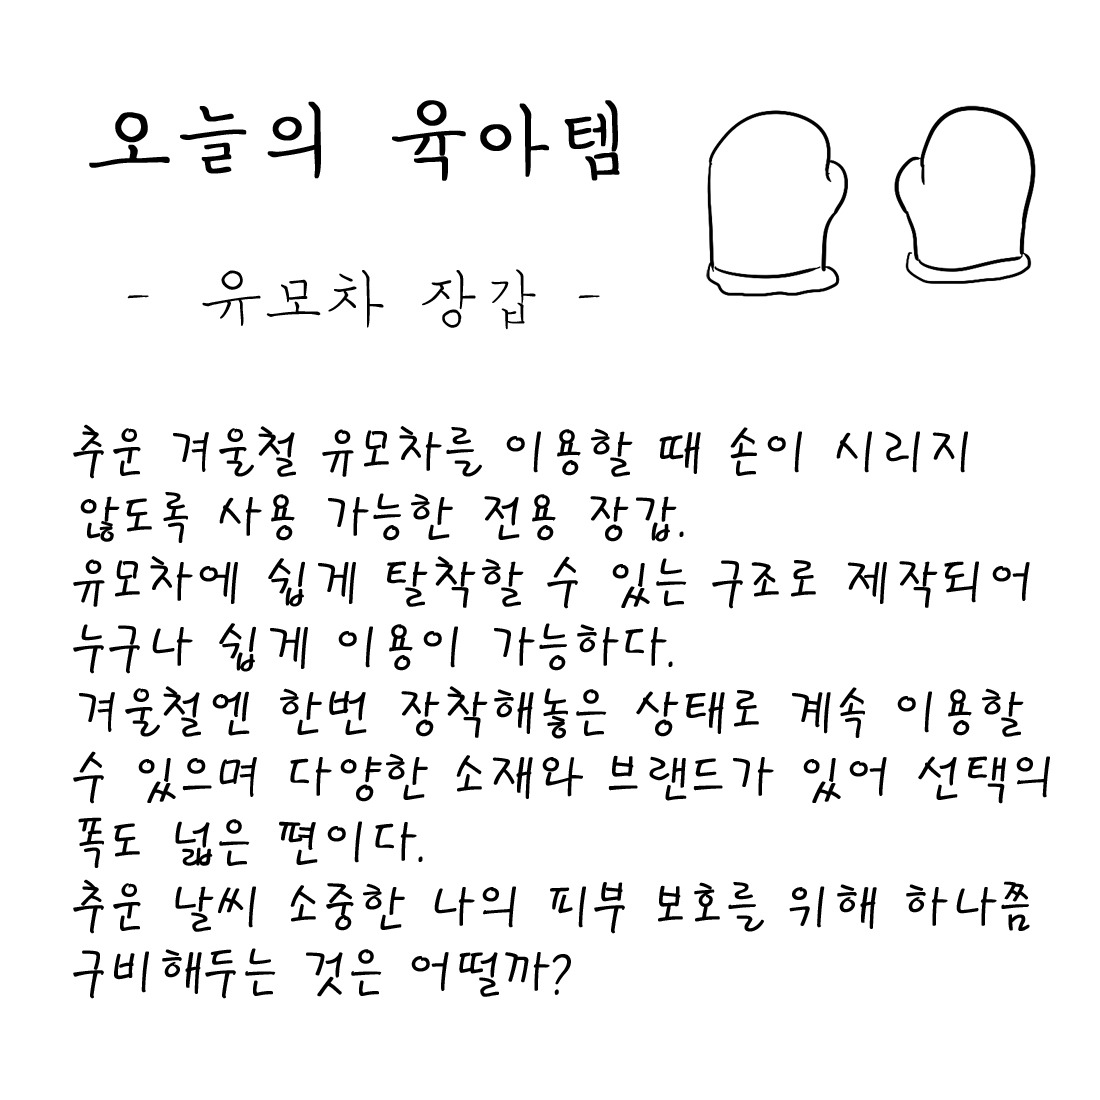 오늘의 육아템
- 유모차 장갑 -
추운 겨울철 유모차를 이용할 때 손이 시리지
않도록 사용 가능한 전용 장갑.
유모차에 쉽게 탈착할 수 있는 구조로 제작되어
누구나 쉽게 이용이 가능하다.
겨울철엔 한번 장착해놓은 상태로 계속 이용할
수 있으며 다양한 소재와 브랜드가 있어 선택의
폭도 넓은 편이다.
추운 날씨 소중한 나의 피부 보호를 위해 하나쯤
구비해두는 것은 어떨까?